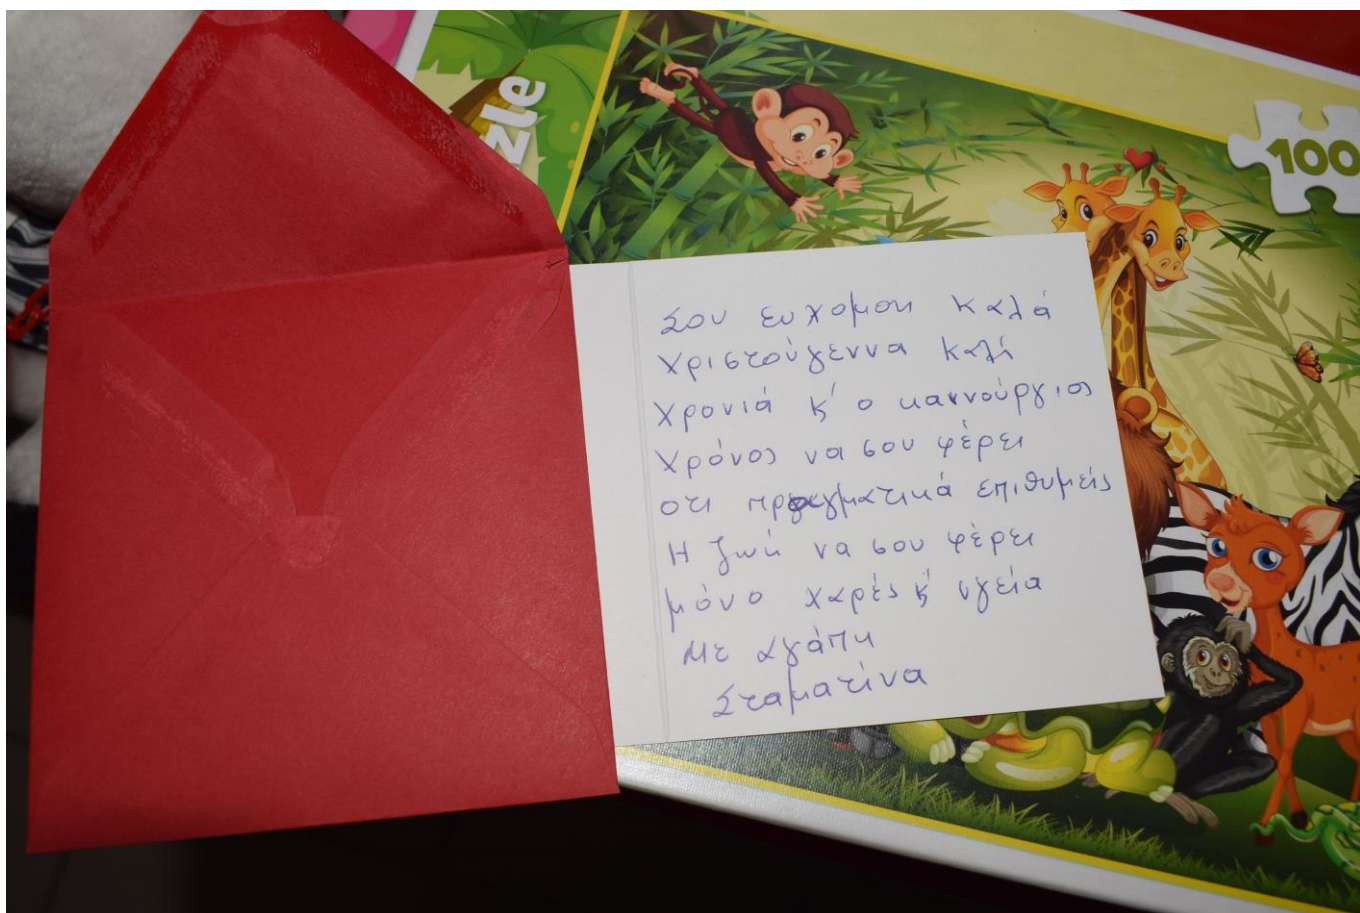 zle
100
Σου ευχομαι καλά
Χριστούγεννα καλή
Χρονιά κ' ο καινούργιος
Χρόνος να σου φέρει
οτι πραγματικά επιθυμείς
Η ζωή να σου φέρει
μόνο χαρές κ' υγεία
Με αγάπη
Σταματίνα